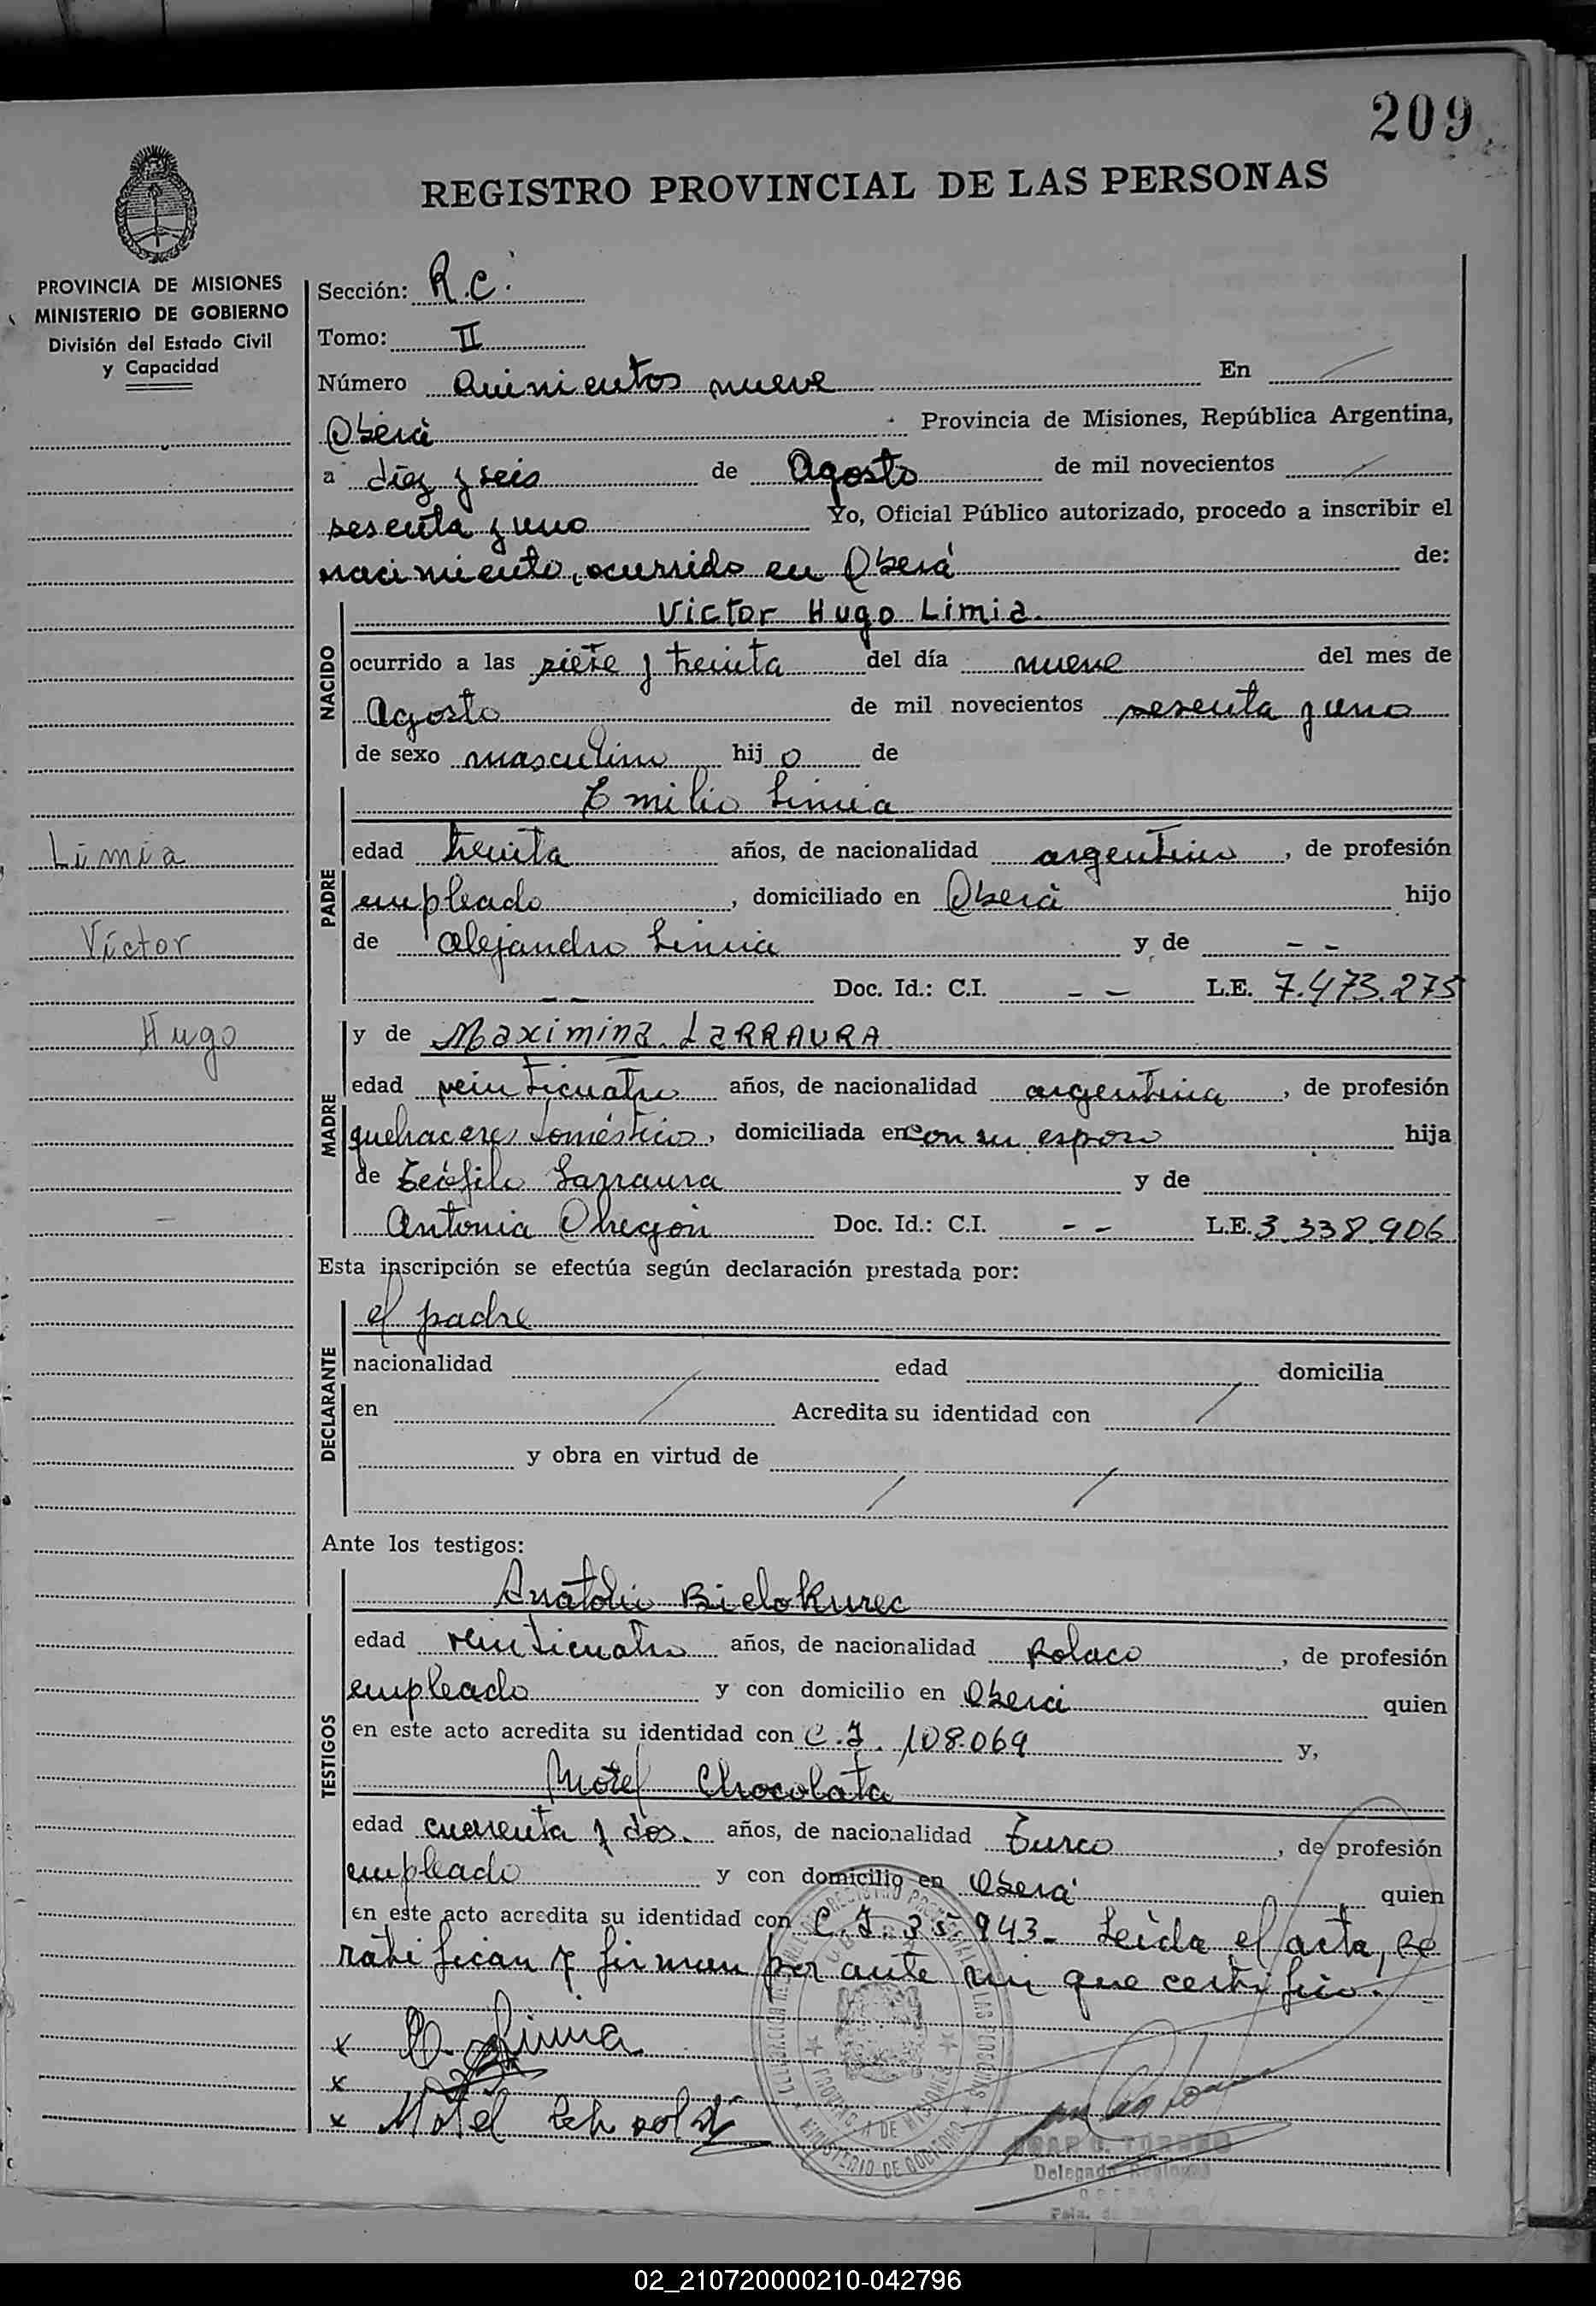 209
REGISTRO PROVINCIAL DE LAS PERSONAS
PROVINCIA DE MISIONES
MINISTERIO DE GOBIERNO
División del Estado Civil
y Capacidad
Sección: R.C.
Tomo: II
Número Quinientos nueve En
Oberá Provincia de Misiones, República Argentina,
a diez y seis de Agosto de mil novecientos
sesenta y uno Yo, Oficial Público autorizado, procedo a inscribir el
nacimiento, ocurrido en Oberá de:
NACIDO
Victor Hugo Limia
ocurrido a las siete y treinta del día nueve del mes de
Agosto de mil novecientos sesenta y uno
de sexo masculino hij o de
PADRE
Emilio Limia
edad treinta años, de nacionalidad argentino, de profesión
empleado, domiciliado en Oberá hijo
de Alejandro Limia y de - -
- - Doc. Id.: C.I. - - L.E. 7.473.275
Limia
Víctor
Hugo
MADRE
y de Maximina LARRAURA
edad veinticuatro años, de nacionalidad argentina, de profesión
quehaceres domésticos, domiciliada en con su esposo hija
de Teófilo Larraura y de
Antonia Obregón Doc. Id.: C.I. - - L.E. 3.338.906
Esta inscripción se efectúa según declaración prestada por:
DECLARANTE
el padre
nacionalidad edad domicilia
en Acredita su identidad con
y obra en virtud de
Ante los testigos:
TESTIGOS
Anatolio Bielokurec
edad veinticuatro años, de nacionalidad Polaco, de profesión
empleado y con domicilio en Oberá quien
en este acto acredita su identidad con C.I. 108.069 y,
Motel Chocolata
edad cuarenta y dos. años, de nacionalidad Turco, de profesión
empleado y con domicilio en Oberá quien
en este acto acredita su identidad con C.I. 35.943- Leída el acta, se
ratifican y firman por ante mi que certifico.
x E. Limia
x
x Motel
MINISTERIO DE GOBIERNO
PROVINCIA DE MISIONES
TORRES
Delegado Regional
02_210720000210-042796